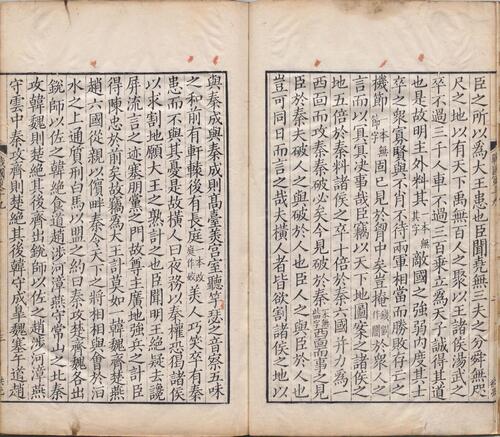 臣之所以爲大王患也臣聞堯無三夫之分舜無咫
尺之地以有天下禹無百人之聚以王諸侯湯武之
卒不過三千人車不過三百乘立爲天子誠得其道
也是故明主外料其本無其字敵國之強弱内度其士
卒之衆寡賢與不肖不待兩軍相當而勝敗存亡之
機節一本無節字固已見於胷中矣豈掩錢劉作闇於衆人之
言而以冥冥決事哉臣竊以天下地圖案之諸侯之
地五倍於秦料諸侯之卒十倍於秦六國并力爲一
西面而攻秦秦破必矣今見破於秦西面而事之見
臣於秦夫破人之與破於人也臣人之與臣於人也
豈可同日而言之哉夫橫人者皆欲割諸侯之地以
與秦成與秦成則高臺美宮室聽竽瑟之音察五味
之和前有軒轅後有長庭美人巧笑卒有秦
患而不與其憂是故橫人日夜務以秦權恐猲諸侯
以求割地願大王之熟計之也臣聞明王絶疑去讒
屏流言之迹塞朋黨之門故尊主廣地強兵之計臣
得陳忠於前矣故竊爲大王計莫如一韓魏齊楚燕
趙六國從親以儐畔秦令天下之將相相與會於洹
水之上通質刑白馬以盟之約曰秦攻楚齊魏各出
銳師以佐之韓絶食道趙涉河漳燕守常山之北秦
攻韓魏則楚絶其後齊出銳師以佐之趙涉河漳燕
守雲中秦攻齊則楚絶其後韓守成皐魏塞午道趙